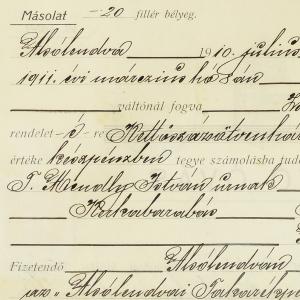 Másolat —.20 fillér bélyeg.
Alsólendva 1910. julius
1911. évi márczius hó 5án
váltónál fogva
rendelet-é-re Kettőszázötvenhár
értéke készpénzben tegye számolásba tud
T. Mendly István urnak
Kerkabarabás
Fizetendő Alsólendván
az „Alsólendvai Takarékp